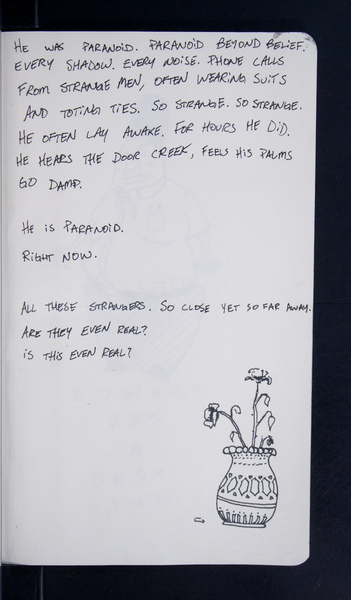 HE WAS PARANOID. PARANOID BEYOND BELIEF.
EVERY SHADOW. EVERY NOISE. PHONE CALLS
FROM STRANGE MEN, OFTEN WEARING SUITS
AND TOTING TIES. SO STRANGE. SO STRANGE.
HE OFTEN LAY AWAKE. FOR HOURS HE DID.
HE HEARS THE DOOR CREEK, FEELS HIS PALMS
GO DAMP.
HE IS PARANOID.
RIGHT NOW.
ALL THESE STRANGERS. SO CLOSE YET SO FAR AWAY.
ARE THEY EVEN REAL?
IS THIS EVEN REAL?